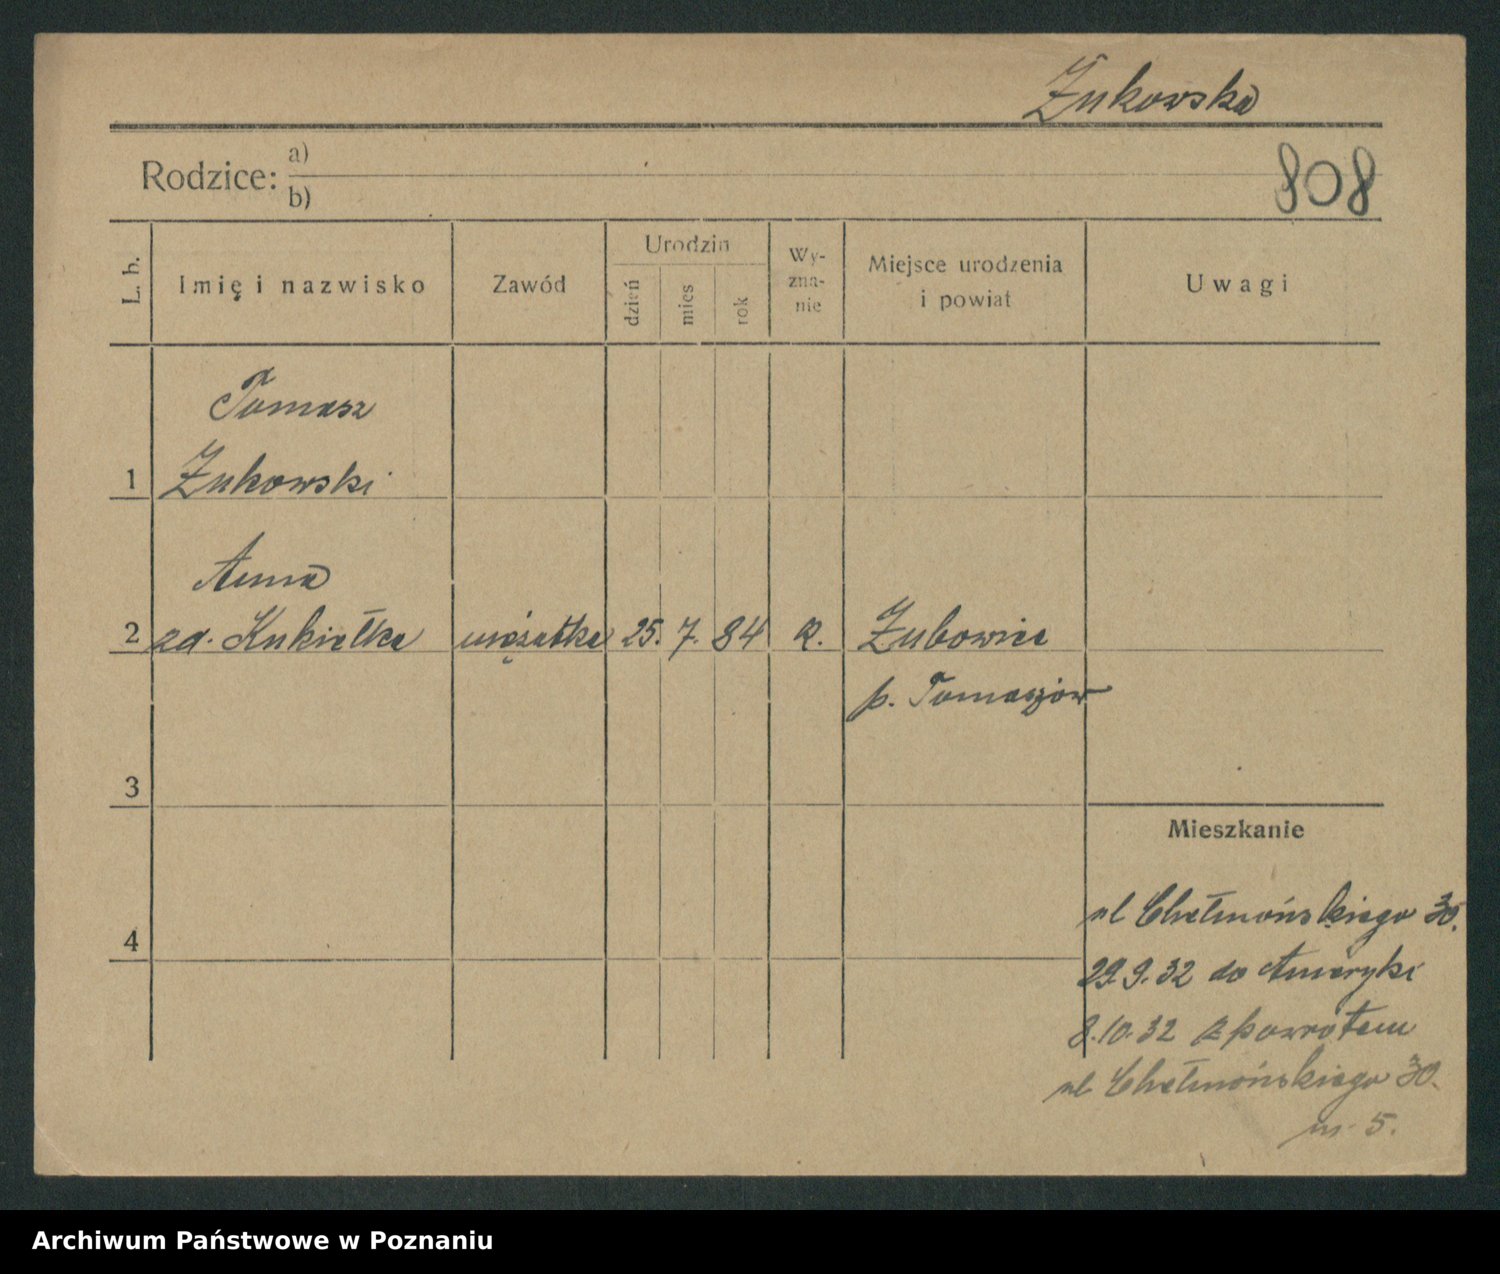 Żukowska
Rodzice: a)
b)
808
L. b.
Imię i nazwisko
Zawód
Urodzin
dzień
mies
rok
Wy-
zna-
nie
Miejsce urodzenia
i powiat
Uwagi
Tomasz
1 Żukowski
Anna
2 zd. Kukiełka mężatka 25. 7. 84 R. Zubowice
p. Tomaszów
3
Mieszkanie
4
ul Chełmońskiego 30.
29.9.32 do Ameryki
8.10.32 z powrotem
ul Chełmońskiego 30.
m 5.
Archiwum Państwowe w Poznaniu